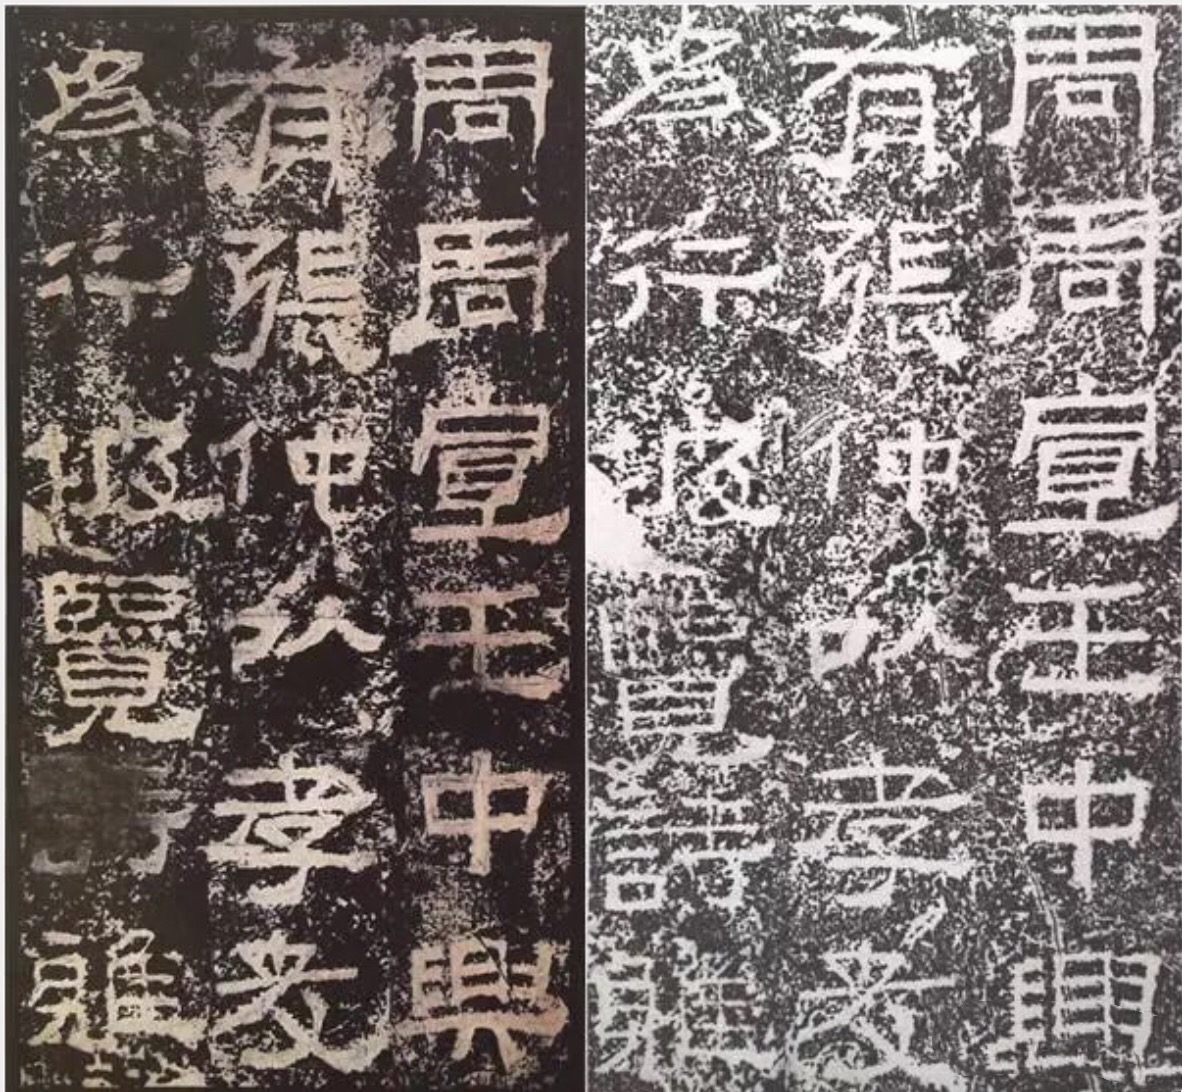 周周宣王中興
有張仲以孝友
為行披覽詩雅
周周宣王中興
有張仲以孝友
為行披覽詩雅